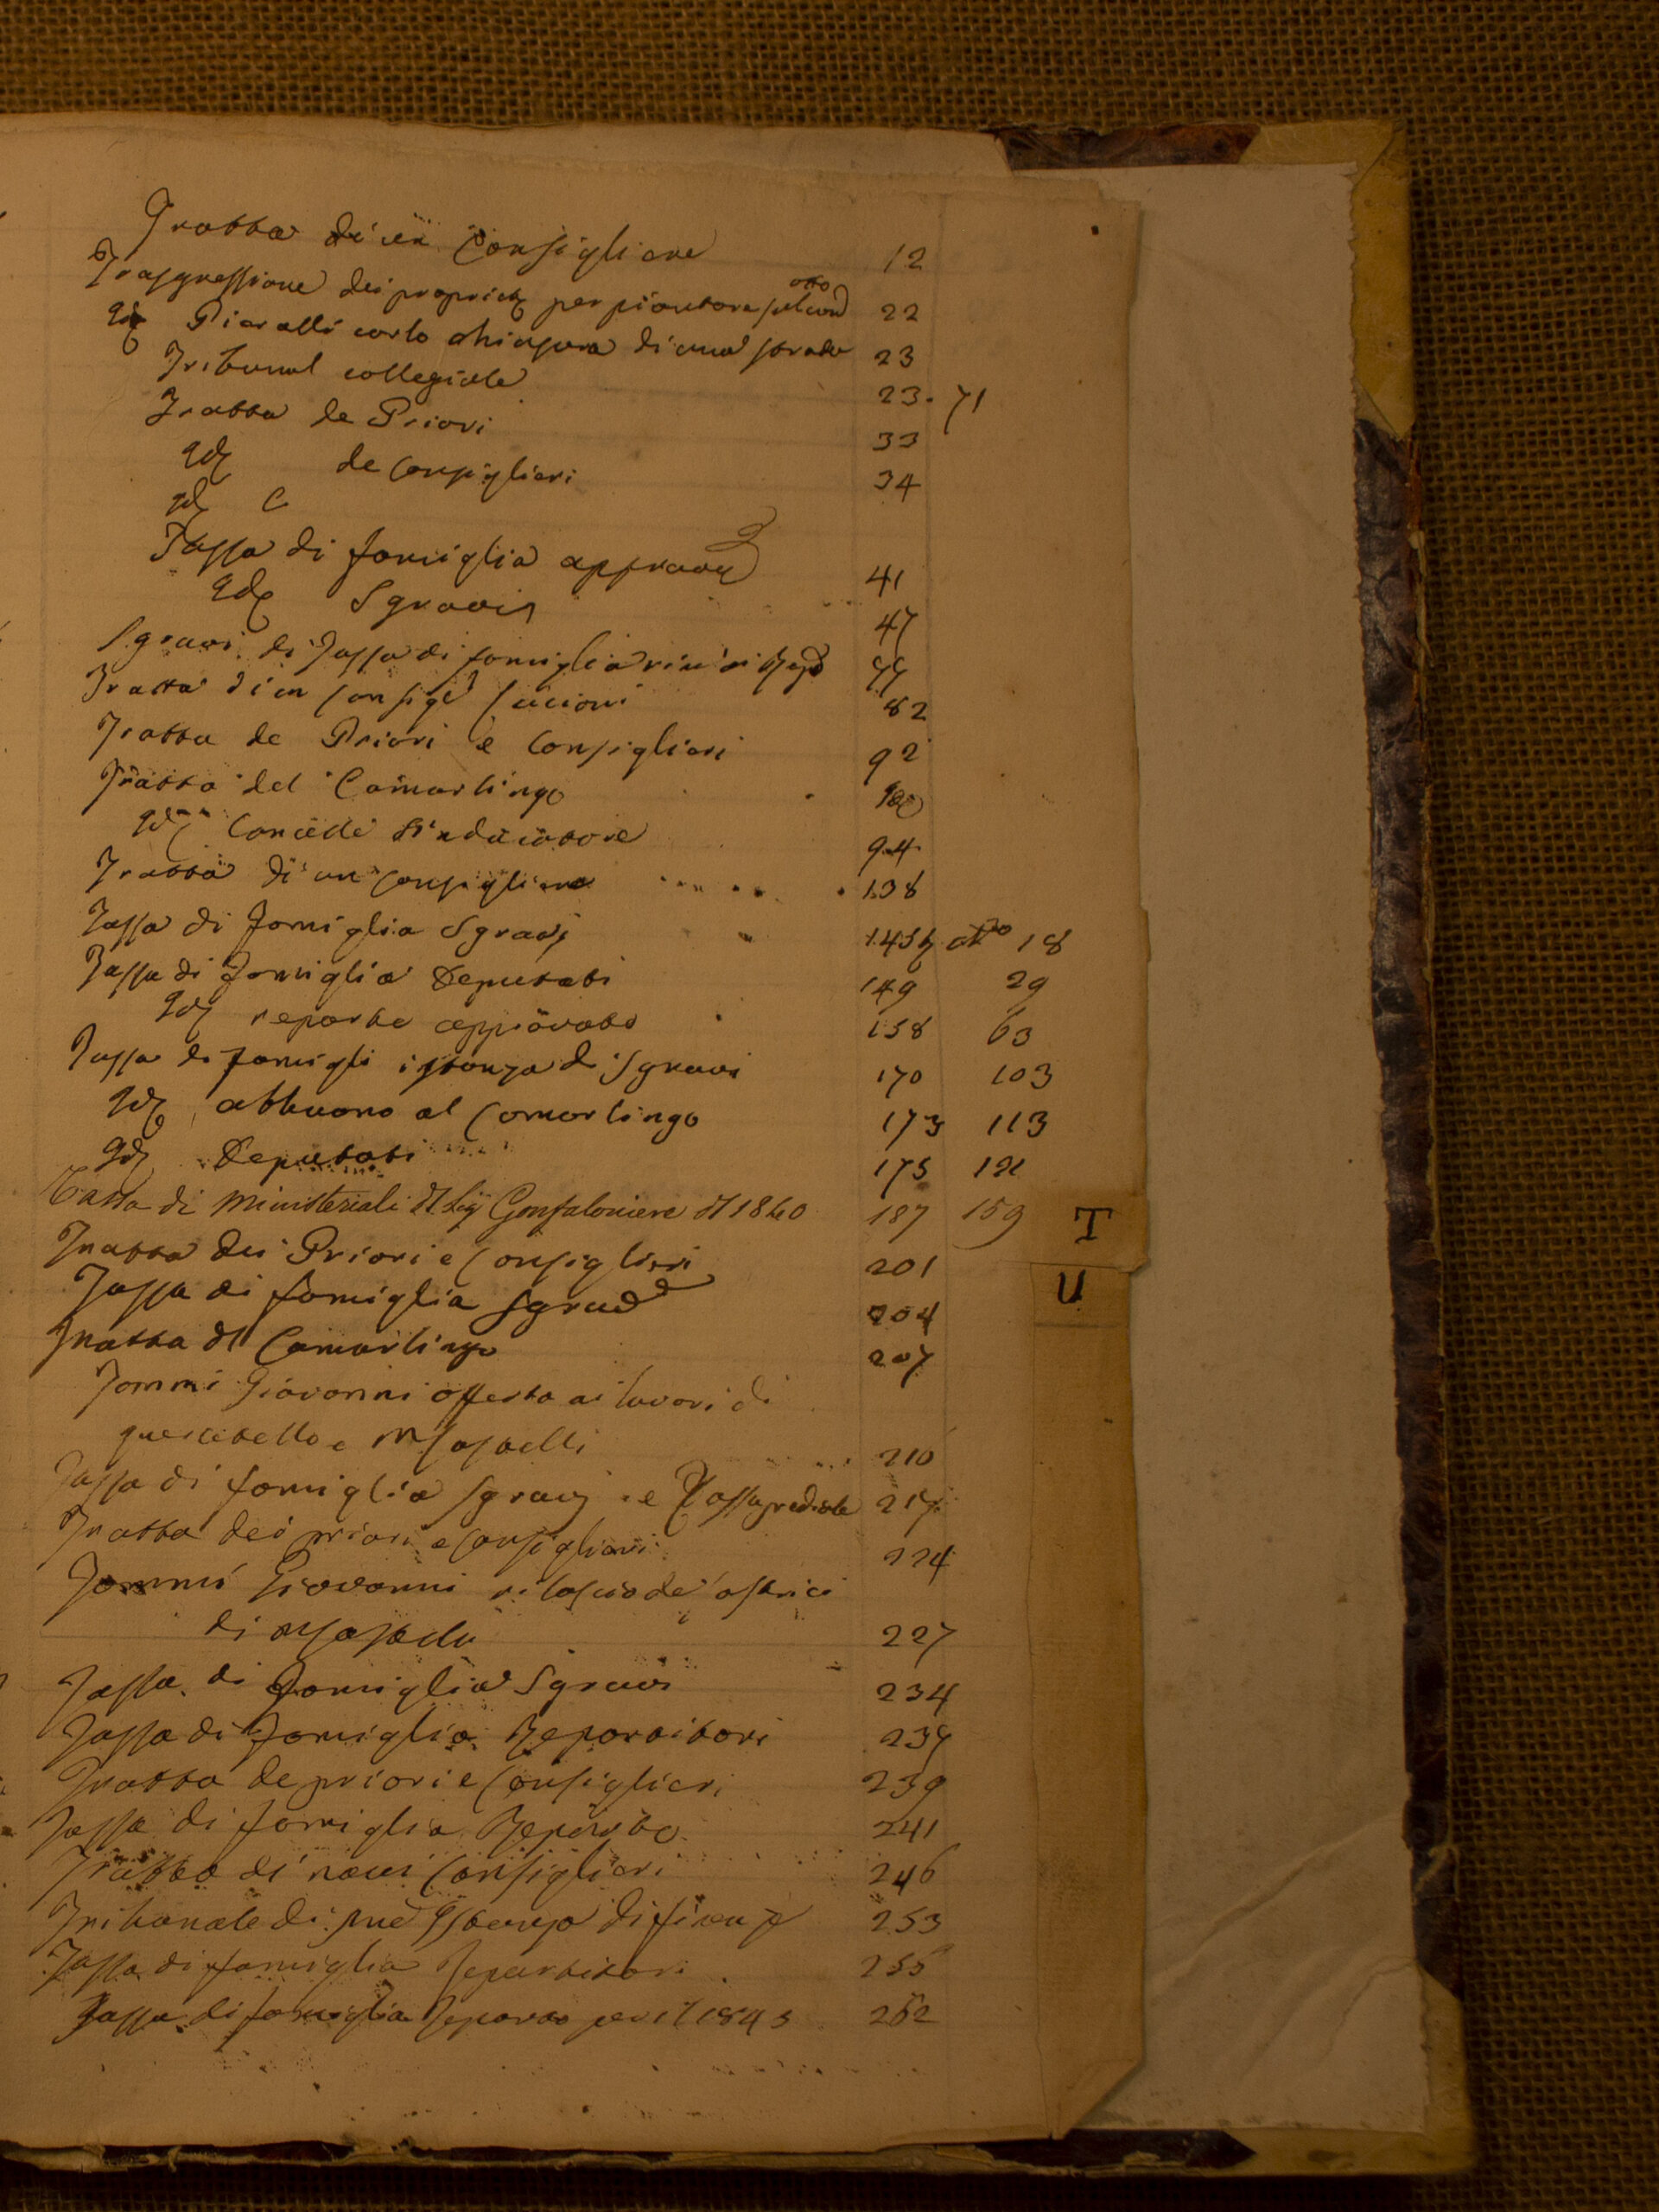 Tratta di un Consigliere 12
Trasgressione dei propriet per piantare 22
Pieralli Carlo chiusura di una strada 23
Tribunal collegiale 23. 71
Tratta de Priori 33
de Consiglieri 34
C
Tassa di famiglia approv 41
Sgravi 47
Sgravi di Tassa di famiglia
Tratta di un Consigl 82
Tratta de Priori e Consiglieri 92
Tratta del Camarlingo
Sindacatore 94
Tratta di un Consigliere 138
Tassa di famiglia Sgravi 18
Tassa di famiglia Deputati 149 29
reparto approvato 158 63
Tassa di famigli istanza di Sgravi 170 103
abbuono al Camarlingo 173 113
Deputati 175 121
Tassa di Ministeriali Gonfaloniere 1840 187 159
T
Tratta dei Priori e Consiglieri 201
U
Tassa di famiglia sgravi 204
Tratta di Camarlingo 207
Tommi Giovanni offerta ai lavori di
querciatello e 210
Tassa di famiglia sgravi e Tassa prediale 217
Tratta dei priori e Consiglieri 224
Tommi Giovanni rilascio de lastrici
di 227
Tassa di famiglia Sgravi 234
Tassa di famiglia Repartitori
Tratta de priori e Consiglieri 239
Tassa di famiglia Reparto 241
Tratta di nuovi Consiglieri 246
Tribunale di Istanza di firenze 253
Tassa di famiglia Repartitori 255
Tassa di famiglia Reparto per il 1843 262